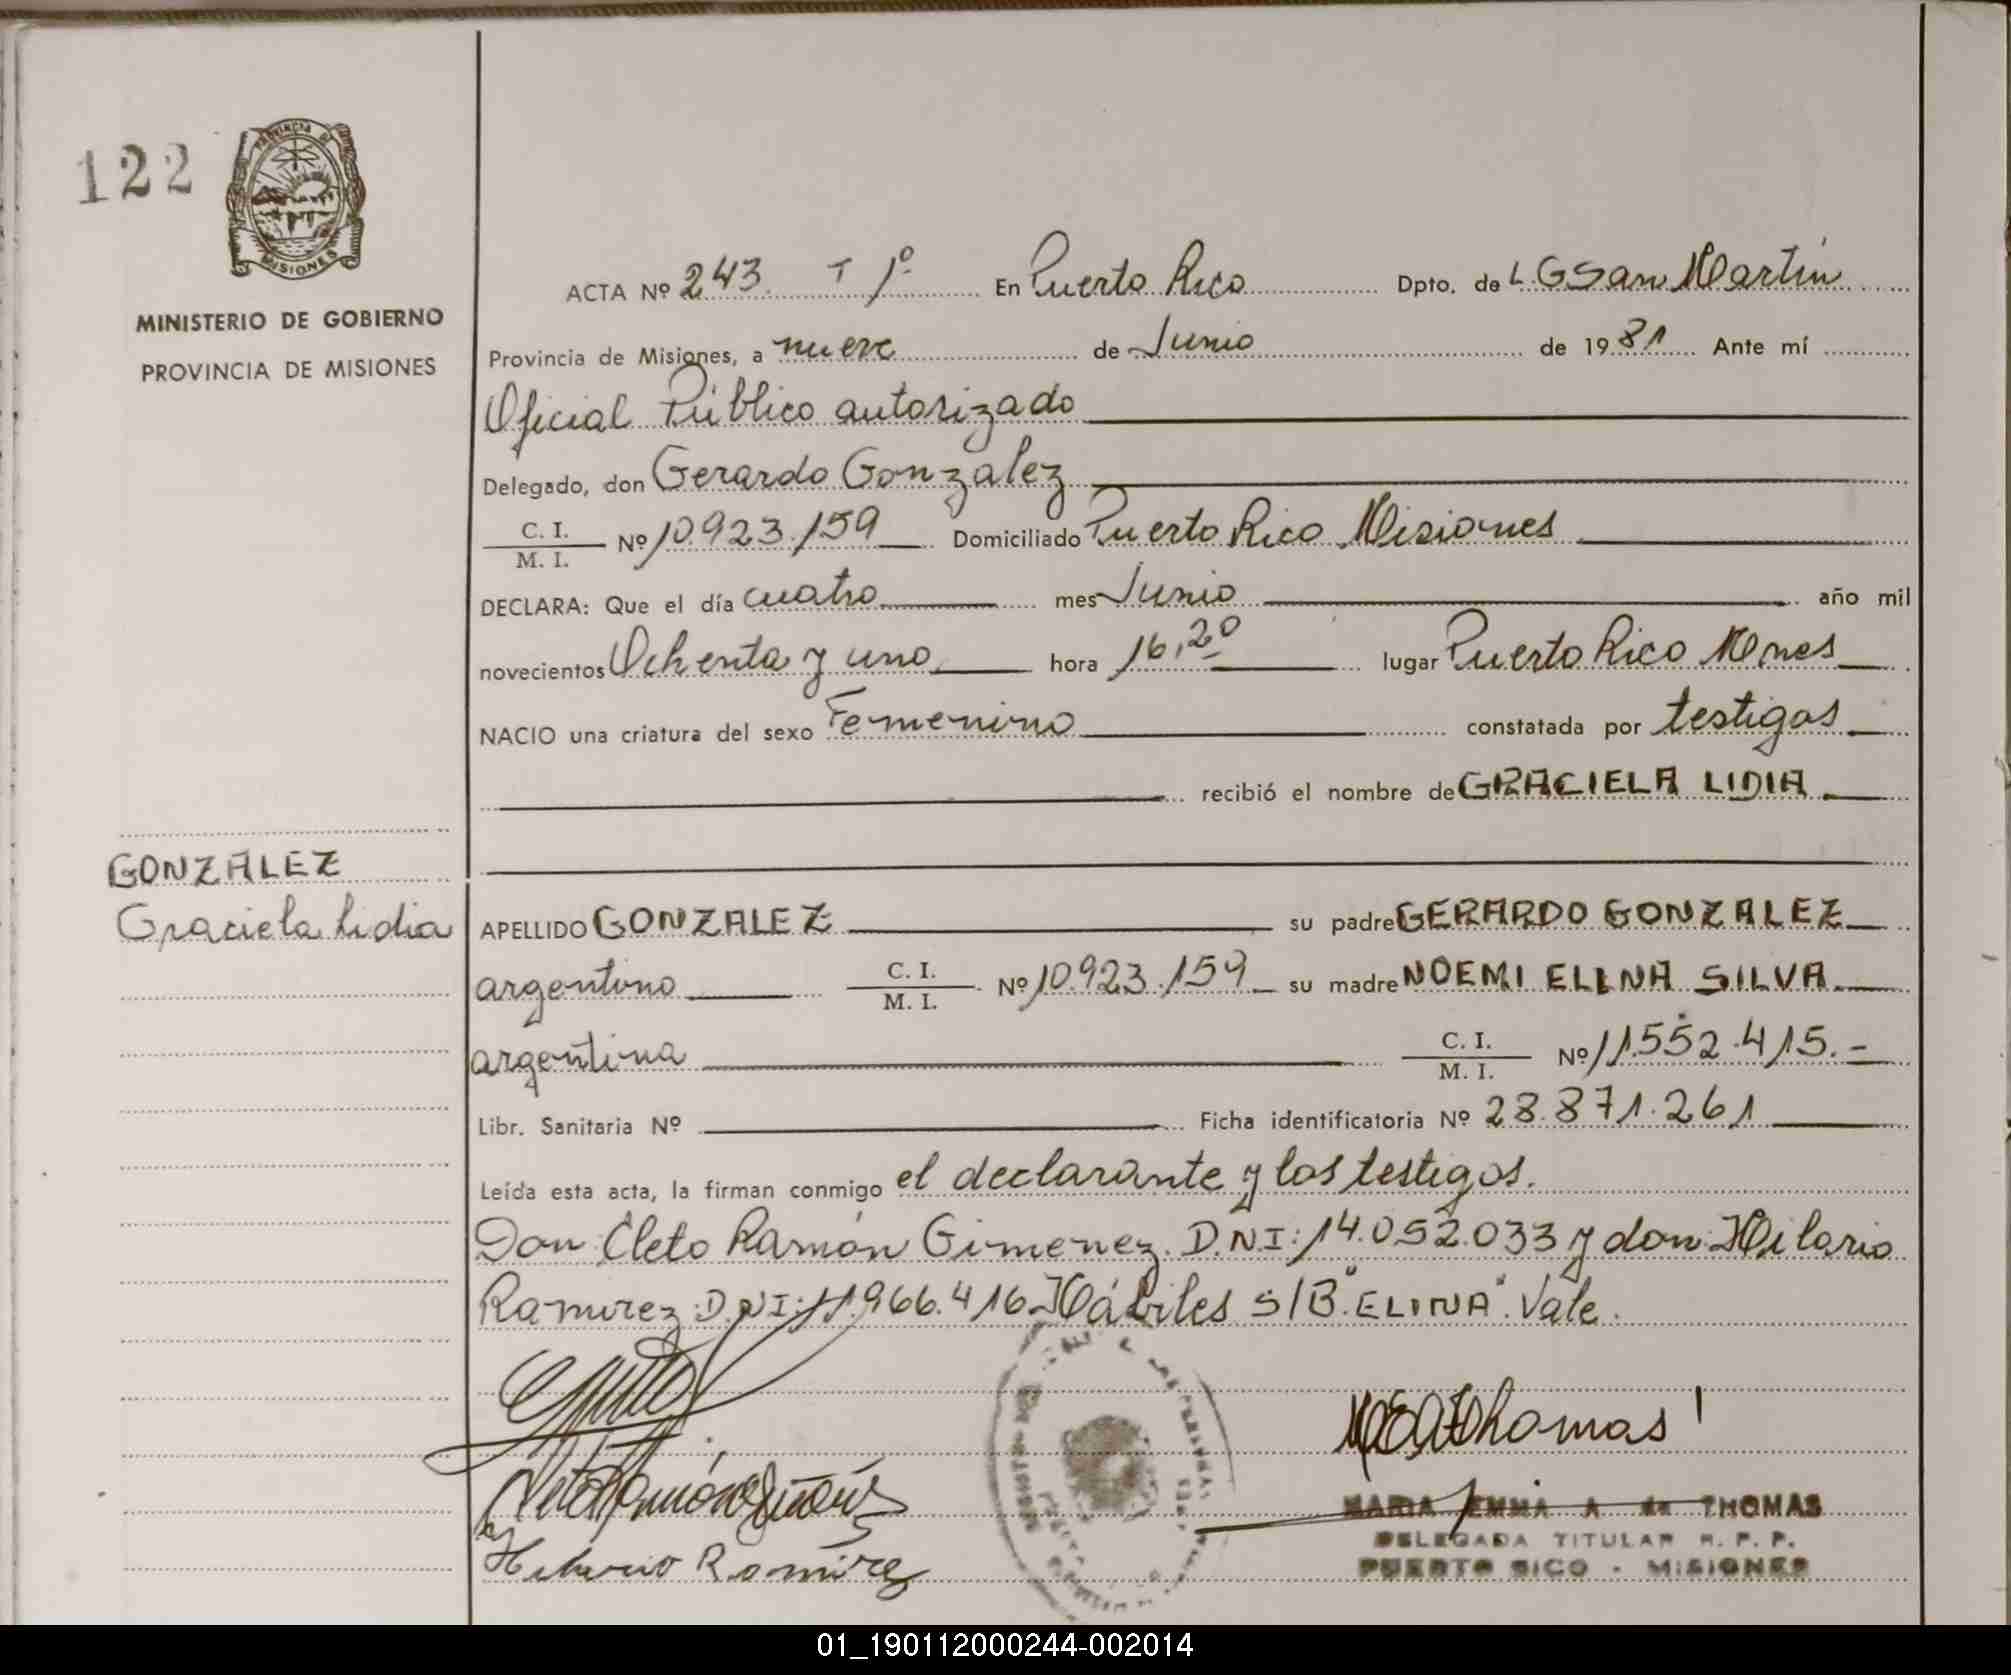 122
PROVINCIA DE
MISIONES
MINISTERIO DE GOBIERNO
PROVINCIA DE MISIONES
ACTA Nº 243 T 1º En Puerto Rico Dpto. de L.GSan Martín
Provincia de Misiones, a nueve de Junio de 1981 Ante mí
Oficial Público autorizado
Delegado, don Gerardo Gonzalez
C. I.
M. I. Nº 10.923.159 Domiciliado Puerto Rico Misiones
DECLARA: Que el día cuatro mes Junio año mil
novecientos Ochenta y uno hora 16,20 lugar Puerto Rico Mnes
NACIO una criatura del sexo Femenino constatada por testigos
recibió el nombre de GRACIELA LIDIA
GONZALEZ
Graciela Lidia
APELLIDO GONZALEZ su padre GERARDO GONZALEZ
argentino C. I.
M. I. Nº 10.923.159 su madre NOEMI ELINA SILVA
argentina C. I.
M. I. Nº 11.552.415.-
Libr. Sanitaria Nº Ficha identificatoria Nº 28.871.261
Leída esta acta, la firman conmigo el declarante y los testigos.
Don: Cleto Ramón Gimenez. D.N.I: 14.052.033 y don: Hilario
Ramirez: D.N.I: 11.966.416. Hábiles S/B "ELINA". Vale.
Thomas
Cleto Ramón
Hilario Ramírez
MARIA EMMA A de THOMAS
DELEGADA TITULAR R. P. P.
PUERTO RICO - MISIONES
01_190112000244-002014